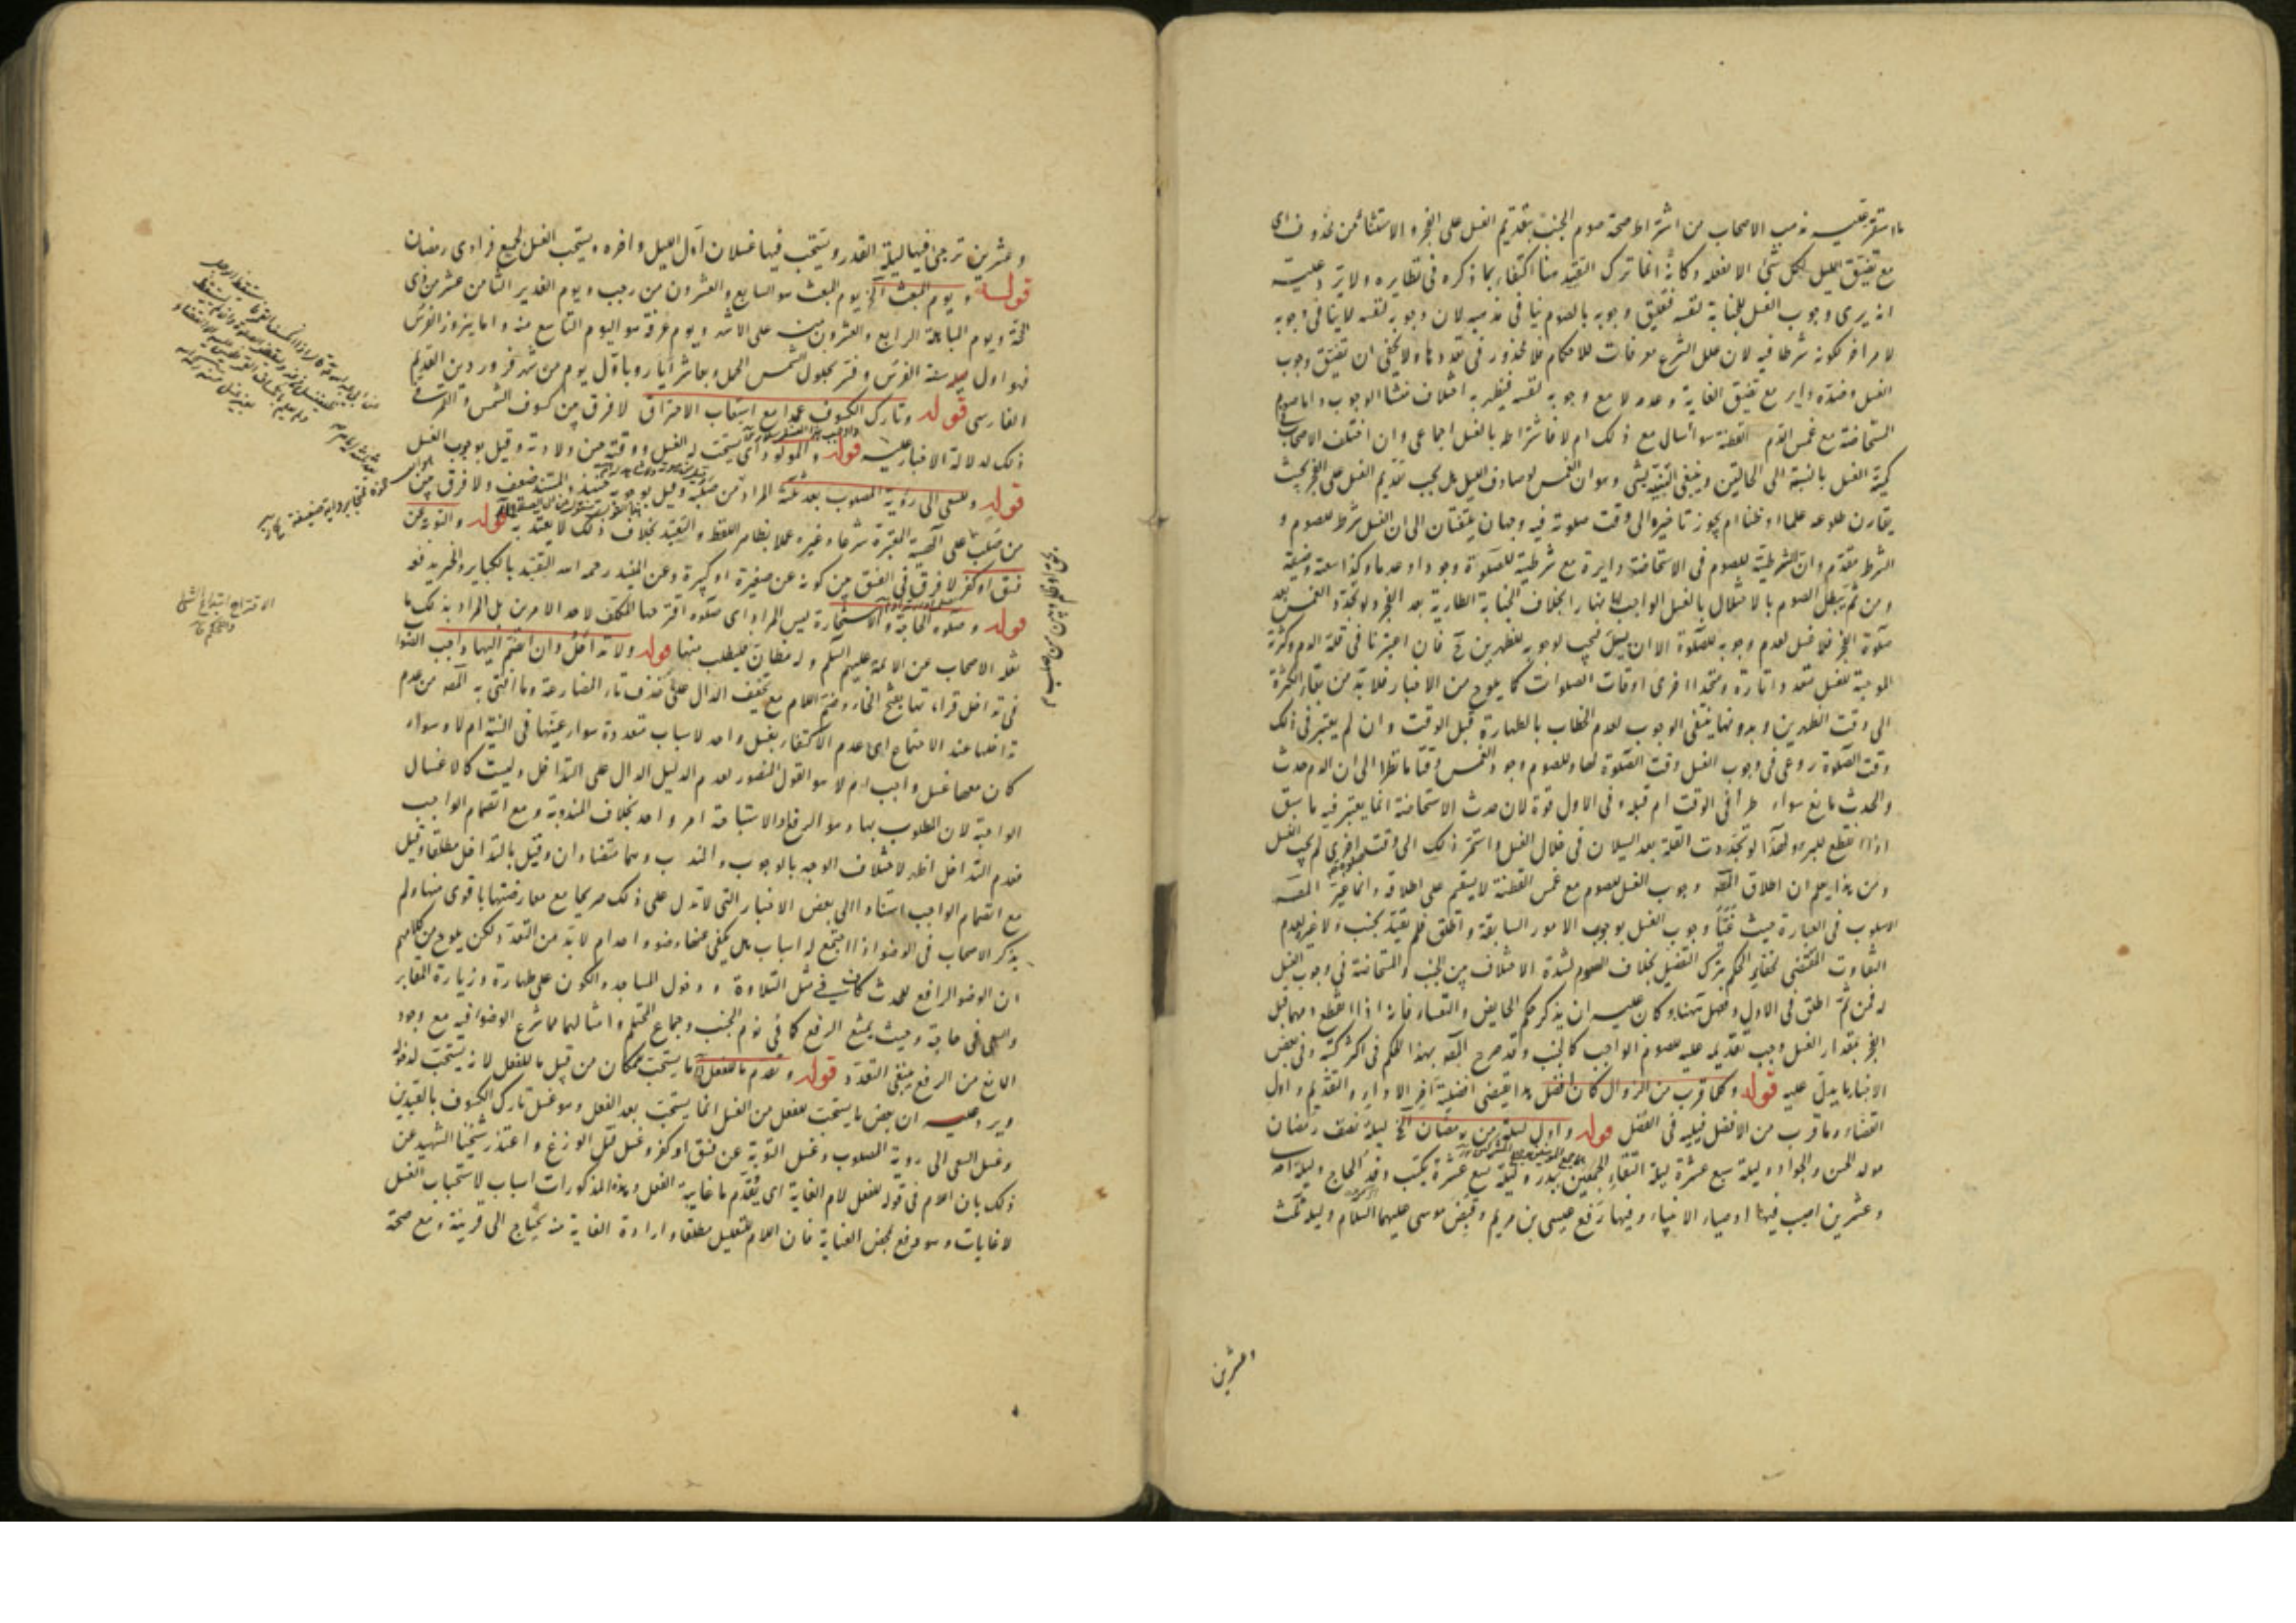 ما استقر عليه مذهب الاصحاب من اشتراط صحة صوم الجنب بتقديم الغسل على الفجر والاستثناء من محذوف اى
مع تضيق الليل لكل شئ الا لفعله وكانه انما ترك التقييد هنا اكتفاء بما ذكره فى نظايره ولا يرد عليه
انه يرى وجوب الغسل للجنابة لنفسه فتضيق وجوبه بالصوم ينافى مذهبه لان وجوبه لنفسه لا ينافى وجوبه
لامر اخر لكونه شرطا فيه لان علل الشرع معرفات للاحكام فلا محذور فى تعددها ولا يخفى ان تضيق وجوب
الغسل وعدمه داير مع تضيق الغاية وعدمه لا مع وجوبه لنفسه فيظهر به اختلاف منشأ الوجوب واما صوم
المستحاضة مع غمس الدم القطنة سواء سال مع ذلك ام لا فاشتراطه بالغسل اجماعى وان اختلف الاصحاب فى
كمية الغسل بالنسبة الى الحالتين وينبغى التنبيه لشئ وهو ان الغمس لو صادف الليل هل يجب تقديم الغسل على الفجر بحيث
يقارن طلوعه علما او ظنا ام يجوز تاخيره الى وقت صلوته فيه وجهان يلتفتان الى ان الغسل شرط للصوم و
الشرط مقدم وان شرطيته للصوم فى الاستحاضة دايرة مع شرطيته للصلوة وجودا وعدما وكذا سعة وضيقا
ومن ثم يبطل الصوم بالاخلال بالغسل الواجب لها نهارا بخلاف الجنابة الطارية بعد الفجر ولو تجدد الغمس بعد
صلوة الفجر فلا غسل لعدم وجوبه للصلوة الا ان يسيل فيجب لوجوبه للظهرين ح فان اعتبرنا فى قلة الدم وكثرته
الموجبة للغسل متعددا تارة ومتحدا اخرى اوقات الصلوات كما يلوح من الاخبار فلا بد من بقاء الكثرة
الى وقت الظهرين وبدونها ينتفى الوجوب لعدم الخطاب بالطهارة قبل الوقت وان لم يعتبر فى ذلك
وقت الصلوة روعى فى وجوب الغسل وقت الصلوة لها وللصوم وجود الغمس وقتا ما نظرا الى ان الدم حدث
والحدث مانع سواء طرأ فى الوقت ام قبله وفى الاول قوة لان حدث الاستحاضة انما يعتبر فيه ما سبق
اذا انقطع للبرء ولهذا لو تجددت القلة بعد السيلان فى خلال الغسل واستمر ذلك الى وقت صلوة اخرى لم يجب الغسل
ومن هذا يعلم ان اطلاق المصه وجوب الغسل للصوم مع غمس القطنة لا يستقيم على اطلاقه وانما غير المصه
الاسلوب فى العبارة حيث غيا وجوب الغسل بوجوب الامور السابقة واطلق فلم يقيد بجنب ولا غيره لعدم
التفاوت المقتضى لتغاير الحكم بترك التفصيل بخلاف الصوم لشدة الاختلاف بين الجنب والمستحاضة فى وجوب الغسل
له فمن ثم اطلق فى الاول وفصل هنا وكان عليه ان يذكر حكم الحايض والنفساء فانه اذا انقطع دمهما قبل
الفجر بمقدار الغسل وجب تقديمه عليه للصوم الواجب كالجنب وقد صرح المصه بهذا الحكم فى اكثر كتبه وفى بعض
الاخبار ما يدل عليه قوله وكلما قرب من الزوال كان افضل هذا يقتضى افضلية آخر الاداء والتقديم واول
القضاء وما قرب من الافضل فيليه فى الفضل قوله واول ليلة من رمضان الخ ليلة نصف رمضان
مولد الحسن والجواد وليلة سبع عشرة ليلة التقاء الجمعين ببدر وليلة تسع عشرة يكتب وفد الحاج وليلة احد
وعشرين اصيب فيها اوصياء الانبياء وفيها رفع عيسى بن مريم وقبض موسى عليهما السلام وليلة ثلث
وعشرين
وعشرين ترجى فيها ليلة القدر ويستحب فيها غسلان اول الليل واخره ويستحب الغسل لجميع فرادى رمضان
قوله ويوم المبعث الخ يوم المبعث هو السابع والعشرون من رجب ويوم الغدير الثامن عشر من ذى
الحجة ويوم المباهلة الرابع والعشرون منه على الاشهر ويوم عرفة هو اليوم التاسع منه واما نيروز الفرس
فهو اول سنة الفرس وفسر بحلول الشمس الحمل وبعاشر ايار وباول يوم من شهر فروردين القديم
الفارسى قوله وتارك الكسوف عمدا مع استيعاب الاحتراق لا فرق بين كسوف الشمس والقمر فى
ذلك لدلالة الاخبار عليه قوله والمولود اى يستحب له الغسل ووقته حين ولادته وقيل بوجوب الغسل
قوله وللسعى الى رؤية المصلوب بعد ثلثة المراد من صلبه وقيل بوجوبه حينئذ والمستند ضعيف ولا فرق بين
من صلب على الهيئة المعتبرة شرعا وغيره عملا بظاهر اللفظ والتقييد بخلاف ذلك لا يعتد به قوله والتوبة عن
فسق او كفر لا فرق فى الفسق بين كونه عن صغيرة او كبيرة وعن المفيد رحمه الله التقييد بالكباير والخبر يدفعه
قوله وصلوة الحاجة والاستخارة ليس المراد اى صلوة اقترحها المكلف لاحد الامرين بل المراد بذلك ما
نقله الاصحاب عن الائمة عليهم السلم وله مظان فليطلب منها قوله ولا تداخل وان انضم اليها واجب الضوا
فى تداخل قراءتها بفتح الخاء وضم اللام مع تخفيف الدال على حذف تاء المضارعة وما افتى به المصه من عدم
تداخلها عند الاجتماع اى عدم الاكتفاء بغسل واحد لاسباب متعددة سواء عينها فى النية ام لا وسواء
كان معها غسل واجب ام لا هو القول المنصور لعدم الدليل الدال على التداخل وليست كالاغسال
الواجبة لان المطلوب بها وهو الرفع والاستباحة امر واحد بخلاف المندوبة ومع انضمام الواجب
فعدم التداخل اظهر لاختلاف الوجه بالوجوب والندب وهما متضادان وقيل بالتداخل مطلقا وقيل
مع انضمام الواجب استنادا الى بعض الاخبار التى لا تدل على ذلك صريحا مع معارضتها باقوى منها ولم
يذكر الاصحاب فى الوضوء اذا اجتمع له اسباب هل يكفى عنها وضوء واحد ام لا بد من التعدد لكن يلوح من كلامهم
ان الوضوء الرافع للحدث كاف فى مثل التلاوة ودخول المساجد والكون على طهارة وزيارة المقابر
والسعى فى حاجة وحيث يمتنع الرفع كما فى نوم الجنب وجماع المحتلم وامثالهما مما شرع الوضوء فيه مع وجود
المانع من الرفع ينبغى التعدد قوله وتقدم ما للفعل الخ ما يستحب للمكان من قبيل ما للفعل لانه يستحب لدخوله
ويرد عليه ان بعض ما يستحب للفعل من الغسل انما يستحب بعد الفعل وهو غسل تارك الكسوف بالقيدين
وغسل السعى الى رؤية المصلوب وغسل التوبة عن فسق او كفر وغسل قتل الوزغ واعتذر شيخنا الشهيد عن
ذلك بان اللام فى قوله للفعل لام الغاية اى يقدم ما غايته الفعل وهذه المذكورات اسباب لاستحباب الغسل
لا غايات وهو مرفع لمحض العناية فان اللام للتعليل مطلقا وارادة الغاية منه يحتاج الى قرينة ومع صحة